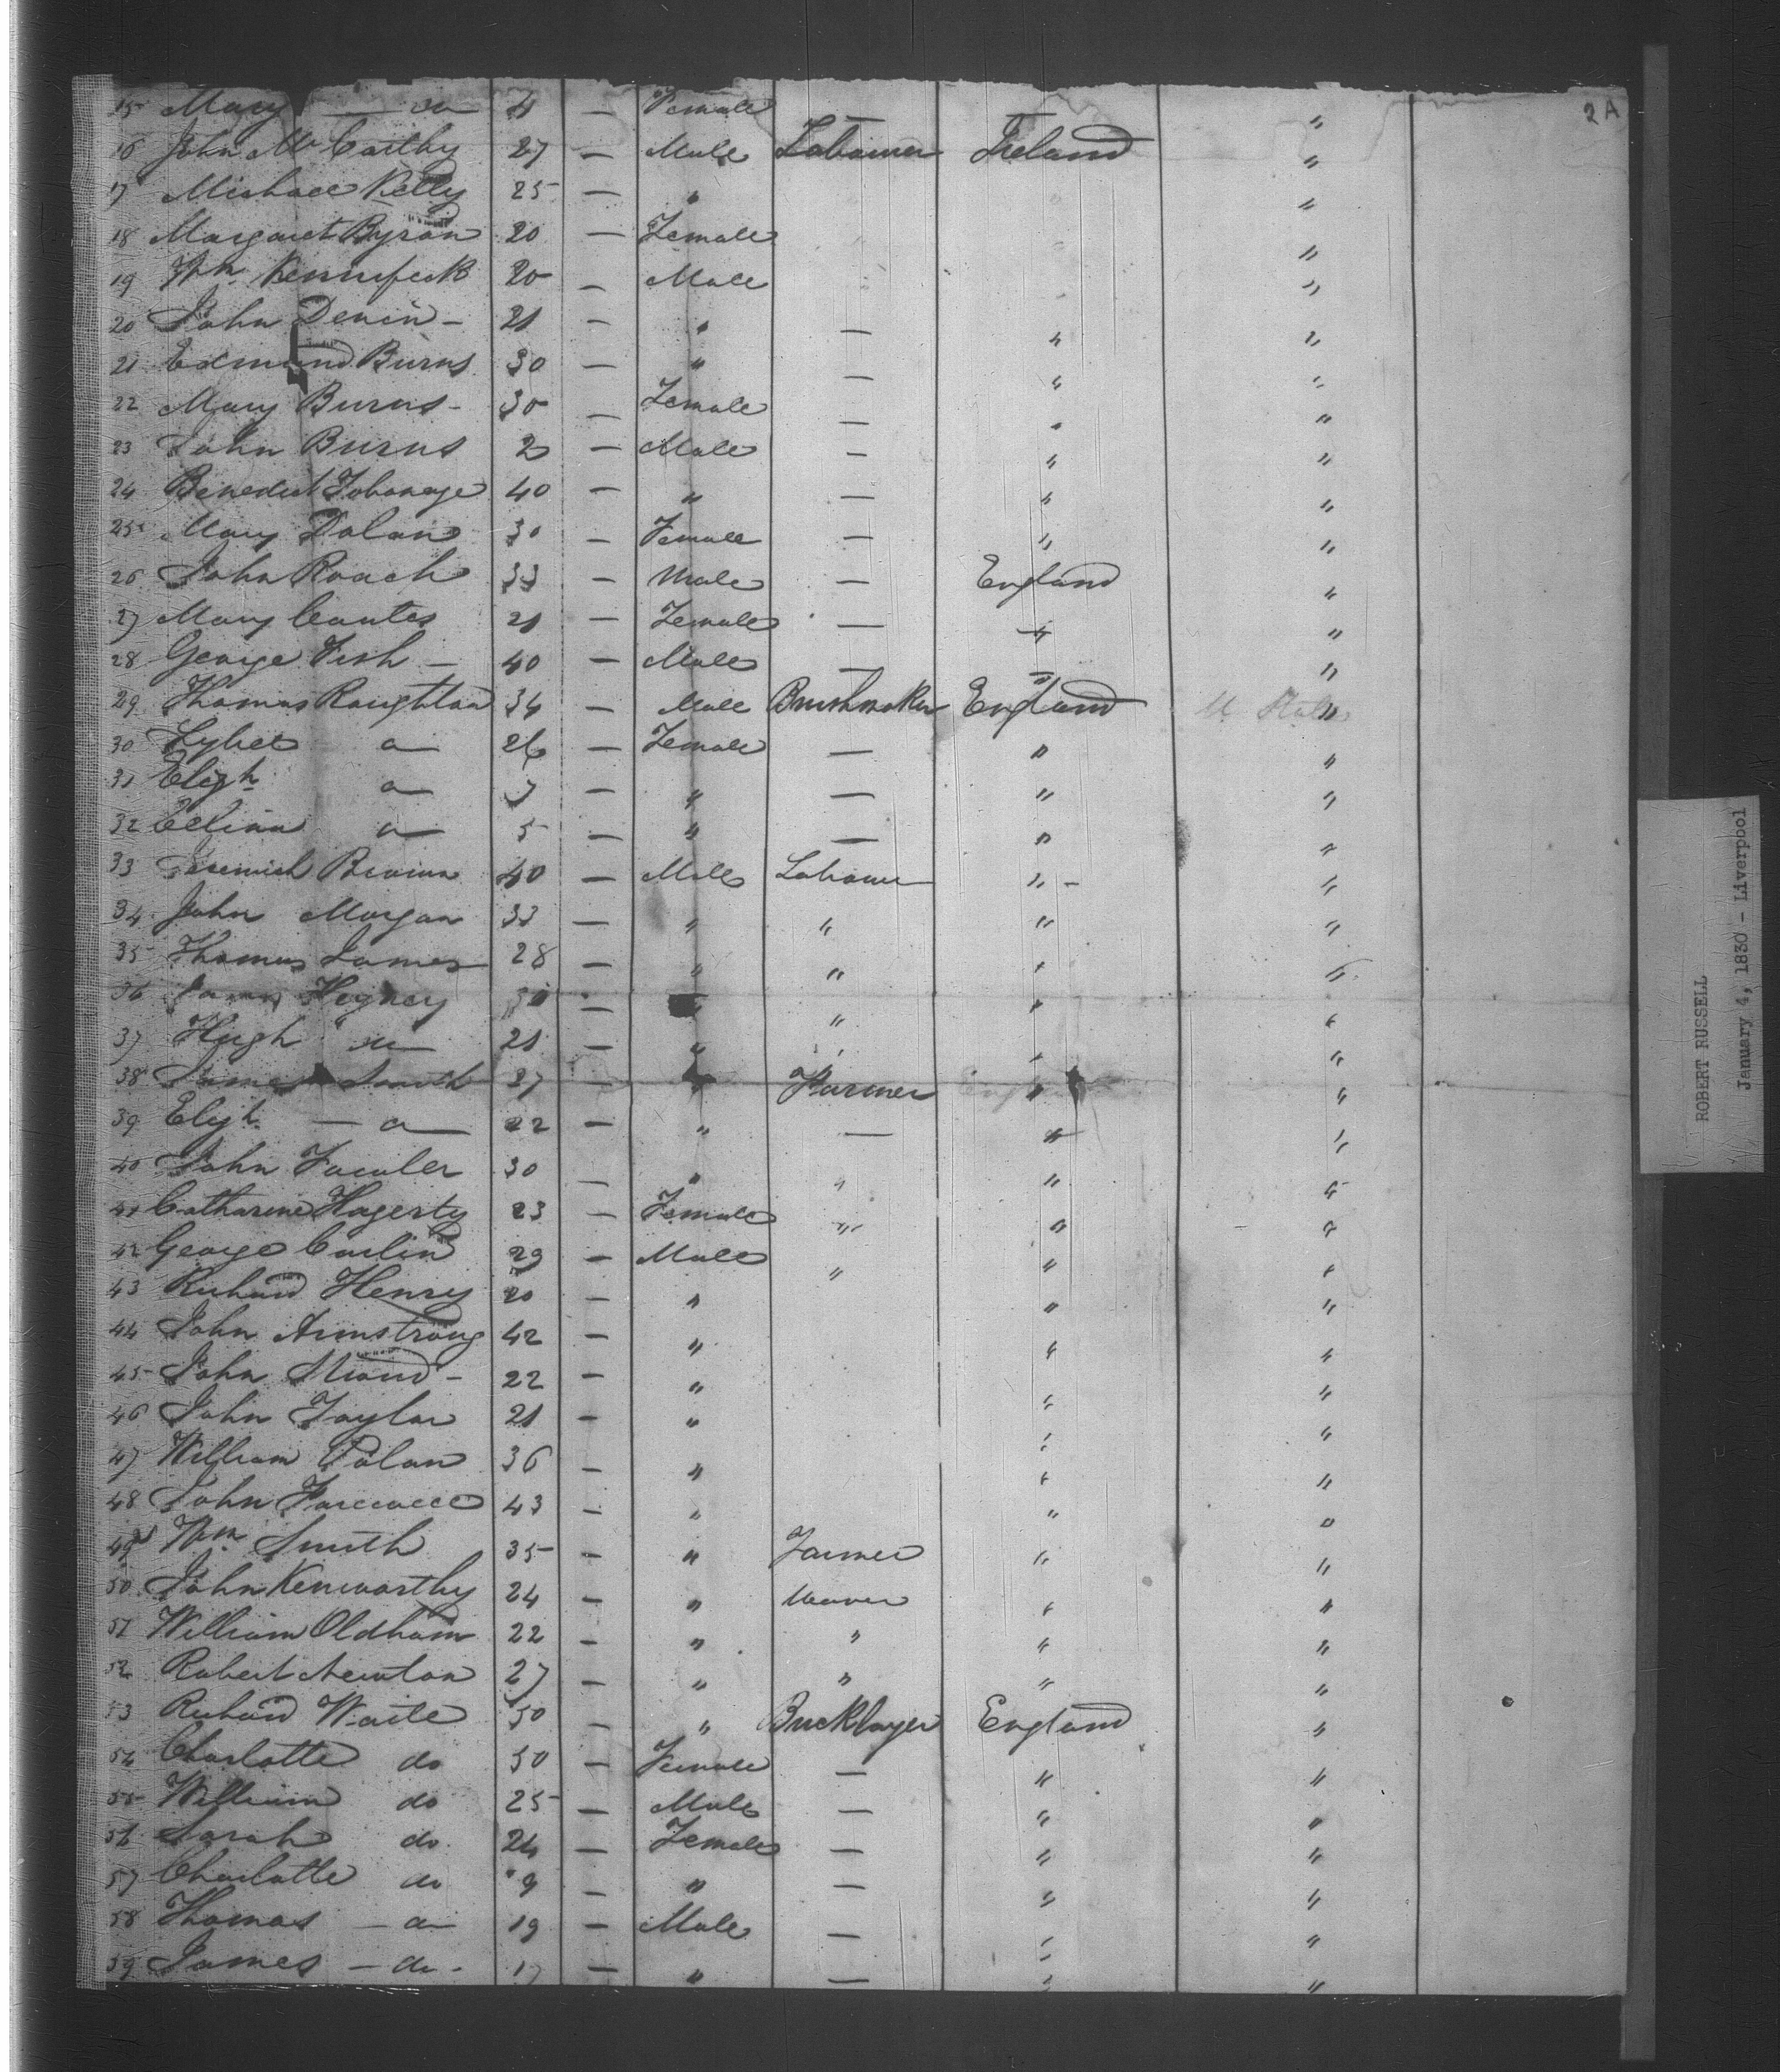 2A
15 Mary — do 4 — Female — "
16 John McCarthy 27 — Male Labourer Ireland "
17 Michael Kelly 25 — " "
18 Margaret Byron 20 — Female "
19 Wm. Kennifeck 20 — Male "
20 John Devin - 21 — " — " "
21 Edmund Burns 30 — " — " "
22 Mary Burns - 30 — Female — " "
23 John Burns 2 — Male — " "
24 Benedict 40 — " — " "
25 Mary Dolan 30 — Female — " "
26 John Roach 33 — Male — England "
27 Mary 21 — Female — " "
28 George Fish — 40 — Male — " "
29 Thomas Roughton 34 — Male Brushmaker England "
30 do 26 — Female — " "
31 Elizh. do 7 — " — " "
32 do 5 — " — " "
33 Jeremiah 40 — Male Labourer " - "
34 John Morgan 33 — " " " "
35 Thomas James 28 — " " " "
36 James 30 — " " " "
37 Hugh do 21 — " " " "
38 James Smith 37 — " Farmer " "
39 Elizh. — do 22 — " — " "
40 John Fowler 30 — " " " "
41 Catharine Hagerty 23 — Female " " "
42 George Carlin 29 — Male " " "
43 Richard Henry 20 — " " "
44 John Armstrong 42 — " " "
45 John - 22 — " " "
46 John Taylor 21 — " " "
47 William 36 — " " "
48 John 43 — " " "
49 Wm. Smith 35 — " Farmer " "
50 John Kenworthy 24 — " Weaver " "
51 William Oldham 22 — " " " "
52 Robert Newton 27 — " " " "
53 Richard Waite 50 — " Bricklayer England "
54 Charlotte do 50 — Female — " "
55 William do 25 — Male — " "
56 Sarah do 24 — Female — " "
57 Charlotte do 9 — " — " "
58 Thomas — do 19 — Male — " "
59 James — do - 17 — " — " "
ROBERT RUSSELL
January 4, 1830 - Liverpool